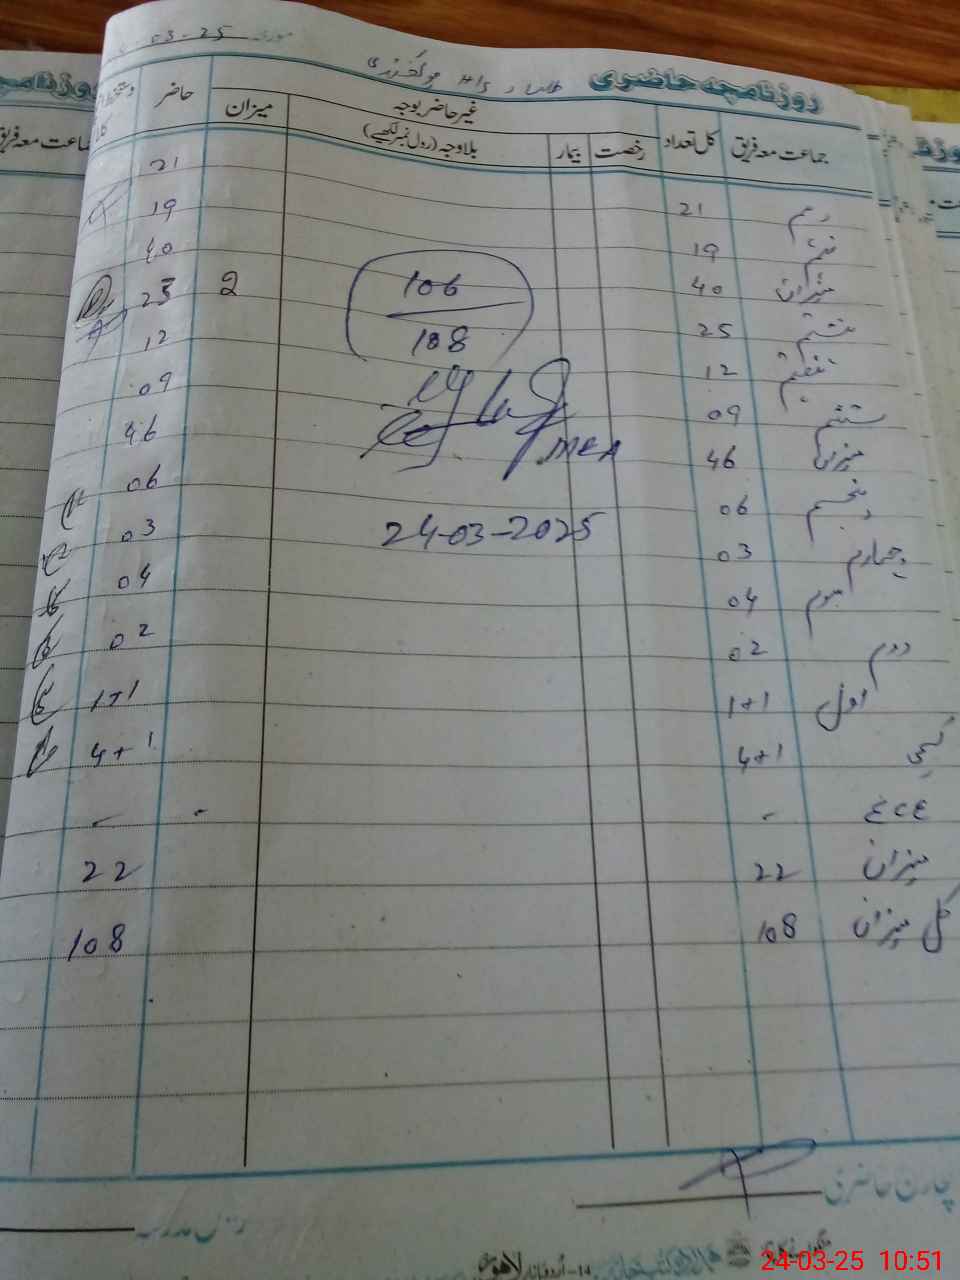 روزنامچہ حاضری طلباء H/S 
03-25
جماعت معہ فریق کل تعداد غیر حاضر بوجہ میزان حاضر
رخصت بیمار بلاوجہ (رول نمبر لکھیے)
دہم 21 21
نہم 19 19
میزان 40 40
ہشتم 25 2 23
ہفتم 12 12
ششم 09 09
میزان 46 46
پنجم 06 06
چہارم 03 03
سوم 04 04
دوم 02 02
اول 1+1 1+1
کچی 4+1 4+1
ECE - - -
میزان 22 22
کل میزان 108 108
106
108
MEA
24-03-2025
لاہور
24-03-25 10:51